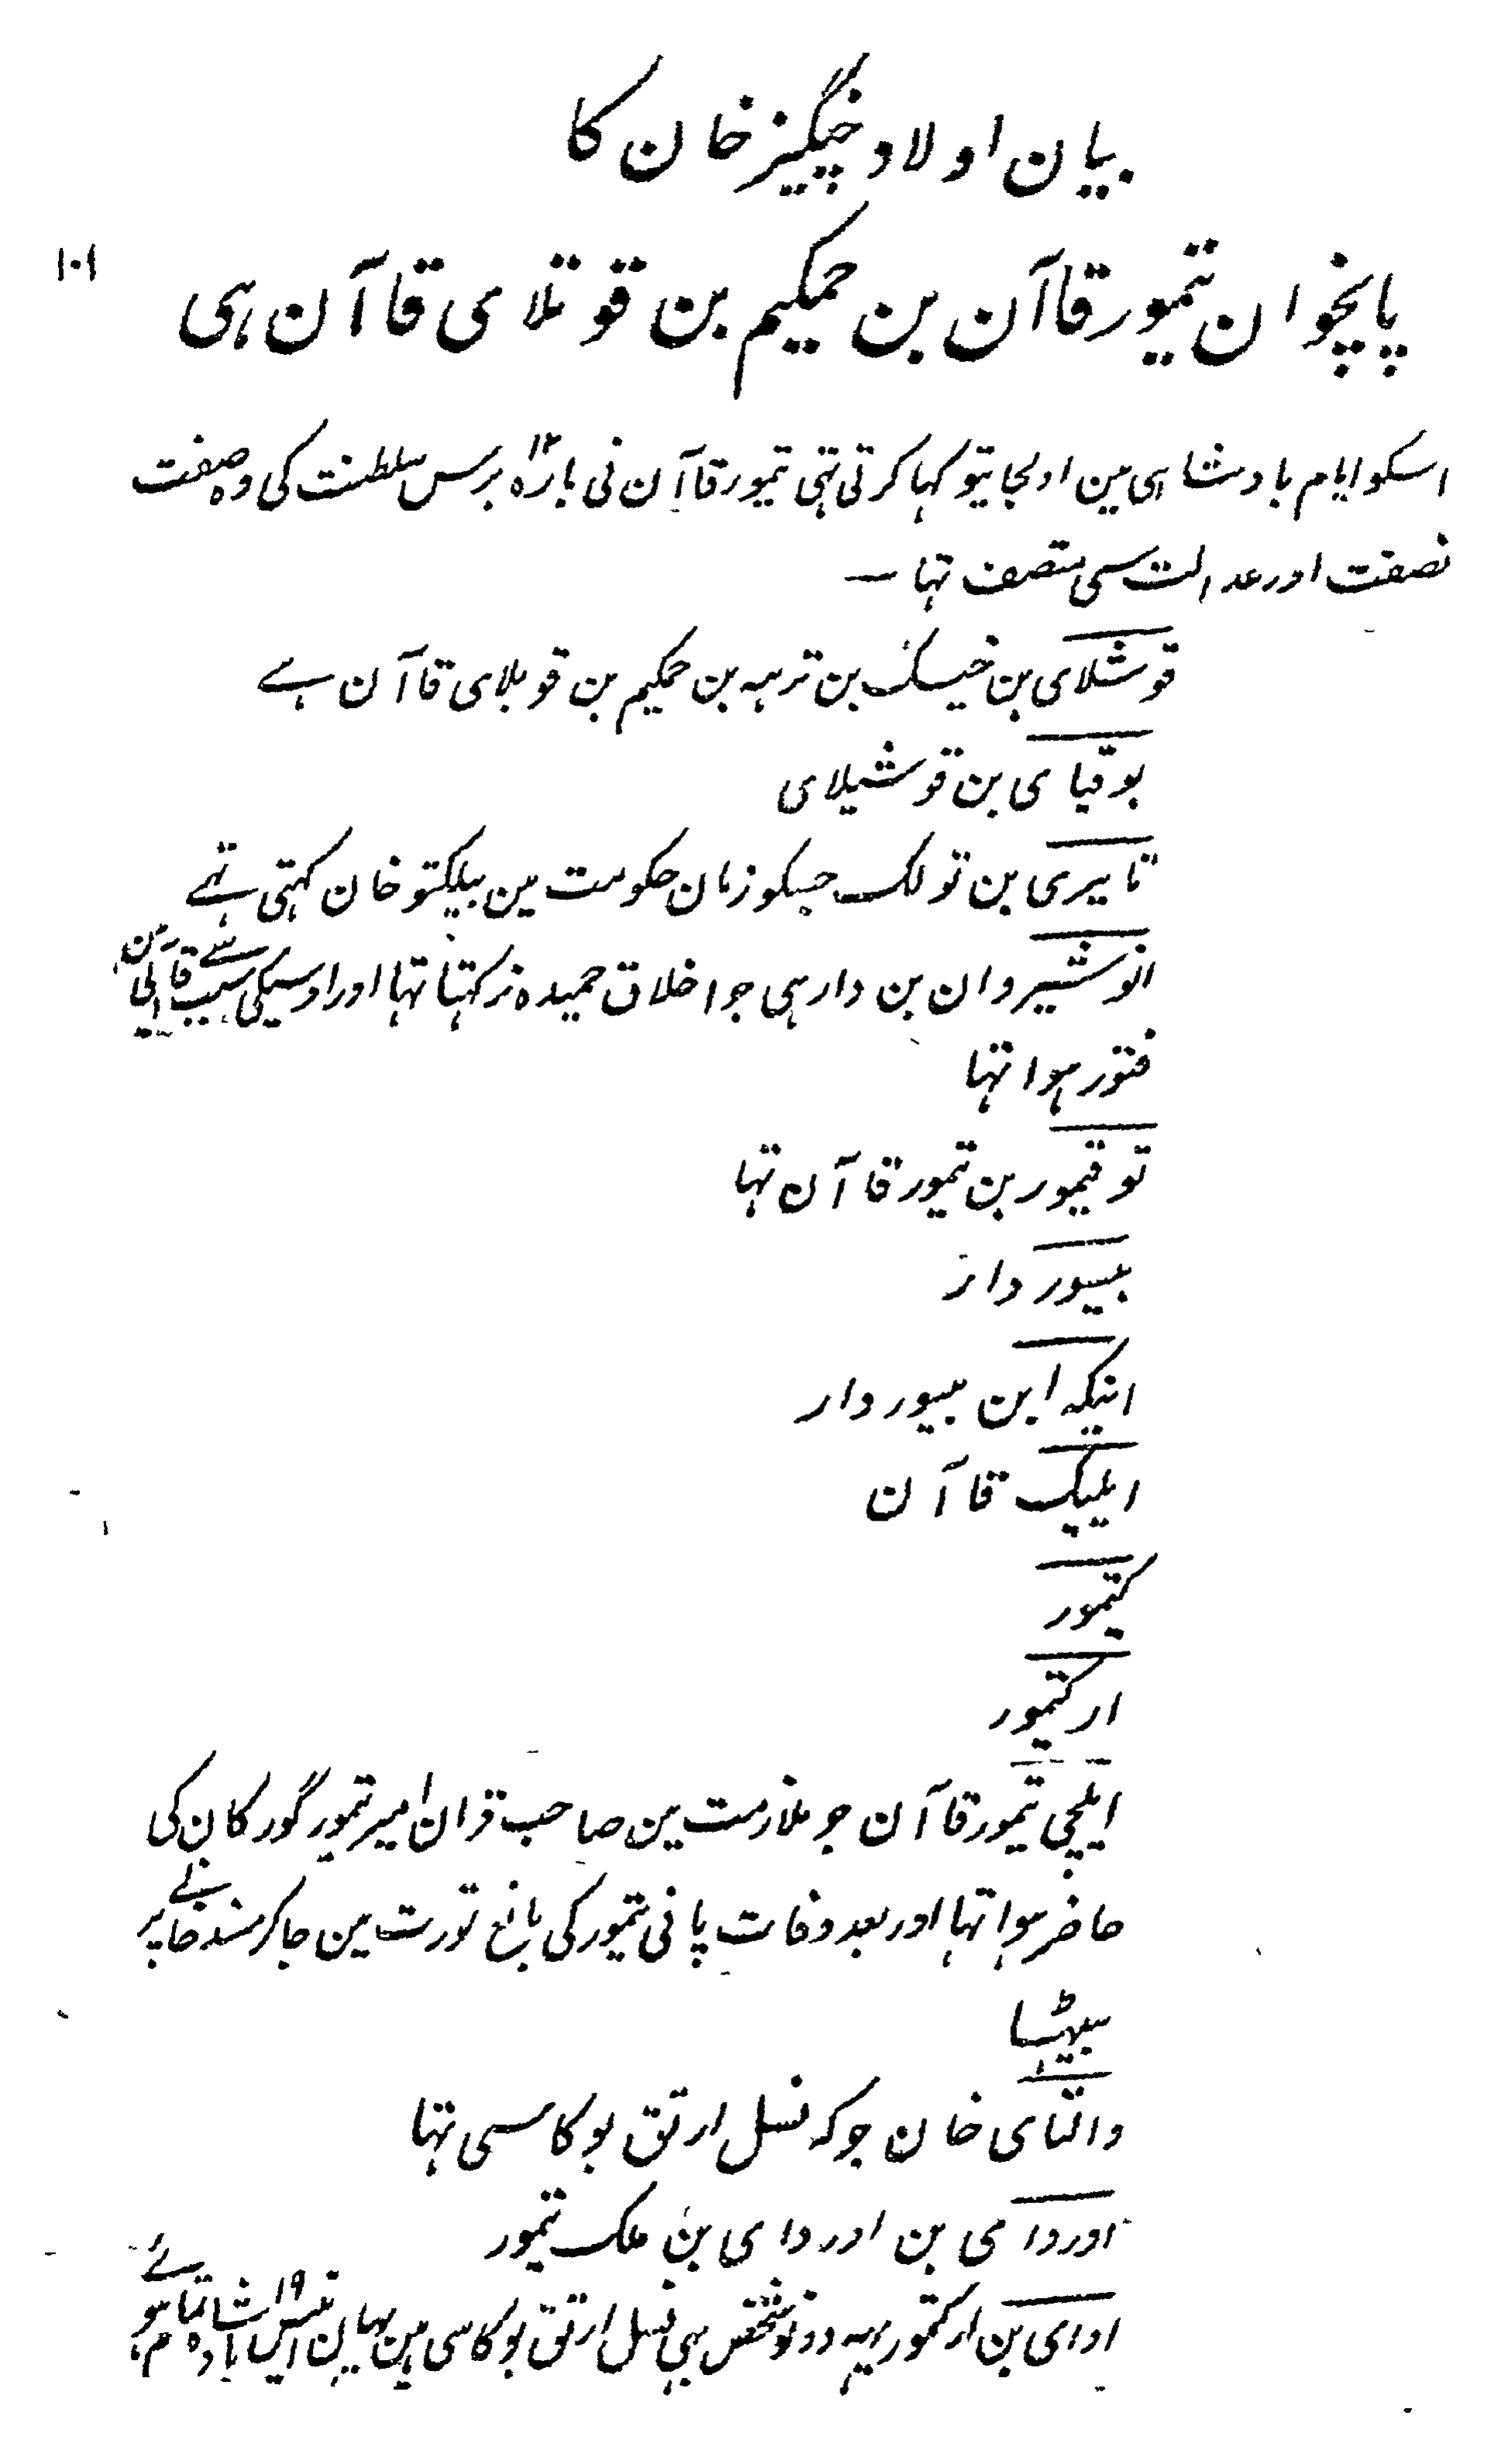 بیان اولاد چنگیز خان کا
۱۰۱
پانچوان تیمور قاآن بن جمکیم بن قوتلای قاآن ہی
اسکو ایام بادشاہی مین اولجایتو کہا کرتی تہی تیمور قاآن نی بارہ ۱۲ برس سلطنت کی وہ صفت
نصفت اور عدالت سی متصف تہا —
قوشلای بن خیسک بن ترمہ بن جمکیم بن قوبلای قاآن ہے
بوقیای بن قوشیلای
تایری بن تولک جسکو زمان حکومت مین بیلکتو خان کہتی تہے
انوشیروان بن دار ہی جو اخلاق حمیدہ نرکہتا تہا اور اوسیکی سبب سے
فتور ہوا تہا
توقیمور بن تیمور قاآن تہا
بیسور دار
انیکہ ابن بیسور دار
ایلیک قاآن
کیتمور
ارکتیمور
ایلچی تیمور قاآن جو ملازمت مین صاحب قران امیر تیمور گورکان کی
حاضر ہوا تہا اور بعد وفات پانی تیمور کی بالغ تورت مین جاکر مسند خانے پر
بیٹہا
والتای خان جو کہ نسل ارتق بوکا سی تہا
اوردامی بن اوردای بن ملک تیمور
ادای بن ارکتمور یہہ دونو شخص بہی نسل ارتق بوکا سی ہین یہان انیس ۱۹ بادشاہ تمام ہوئے